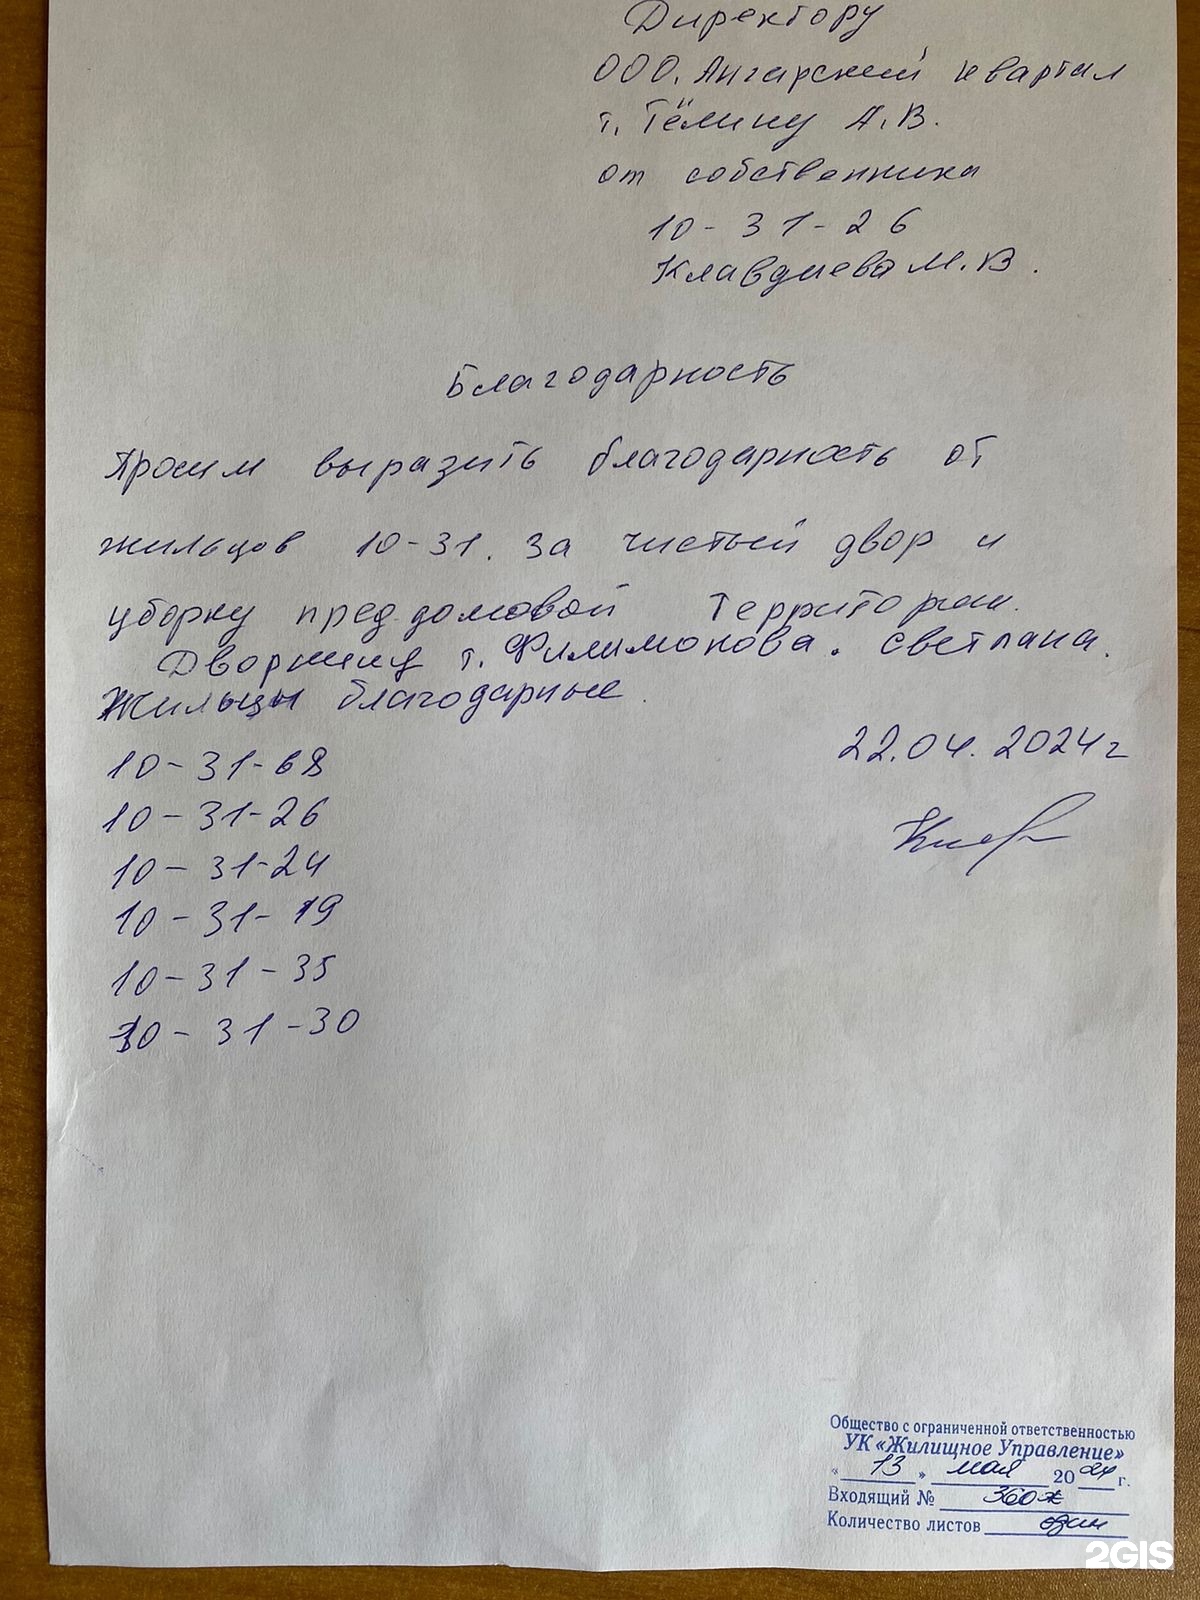 Директору
ООО. Ангарский квартал
т. Тёмину А.В.
от собственника
10-31-26
Клавдиева М.В.
Благодарность
Просим выразить благодарность от
жильцов 10-31. за чистый двор и
уборку пред.домовой территории.
Дворнику т. Филимонова. Светлана.
Жильцы благодарные.
22.04.2024г
10-31-68
10-31-26
10-31-24
10-31-19
10-31-35
10-31-30
Общество с ограниченной ответственностью
УК «Жилищное Управление»
« 13 » мая 2024 г.
Входящий № 360ж
Количество листов один
2GIS